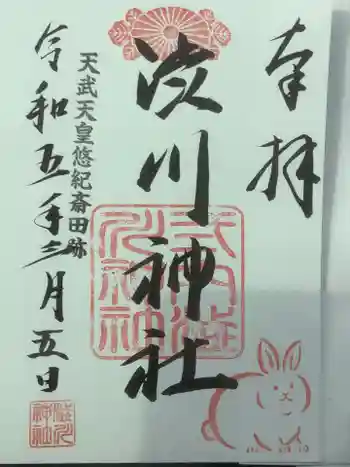 奉拝
渋川神社
式内澁
川神社
天武天皇悠紀斎田跡
令和五年二月五日
澁川
神社